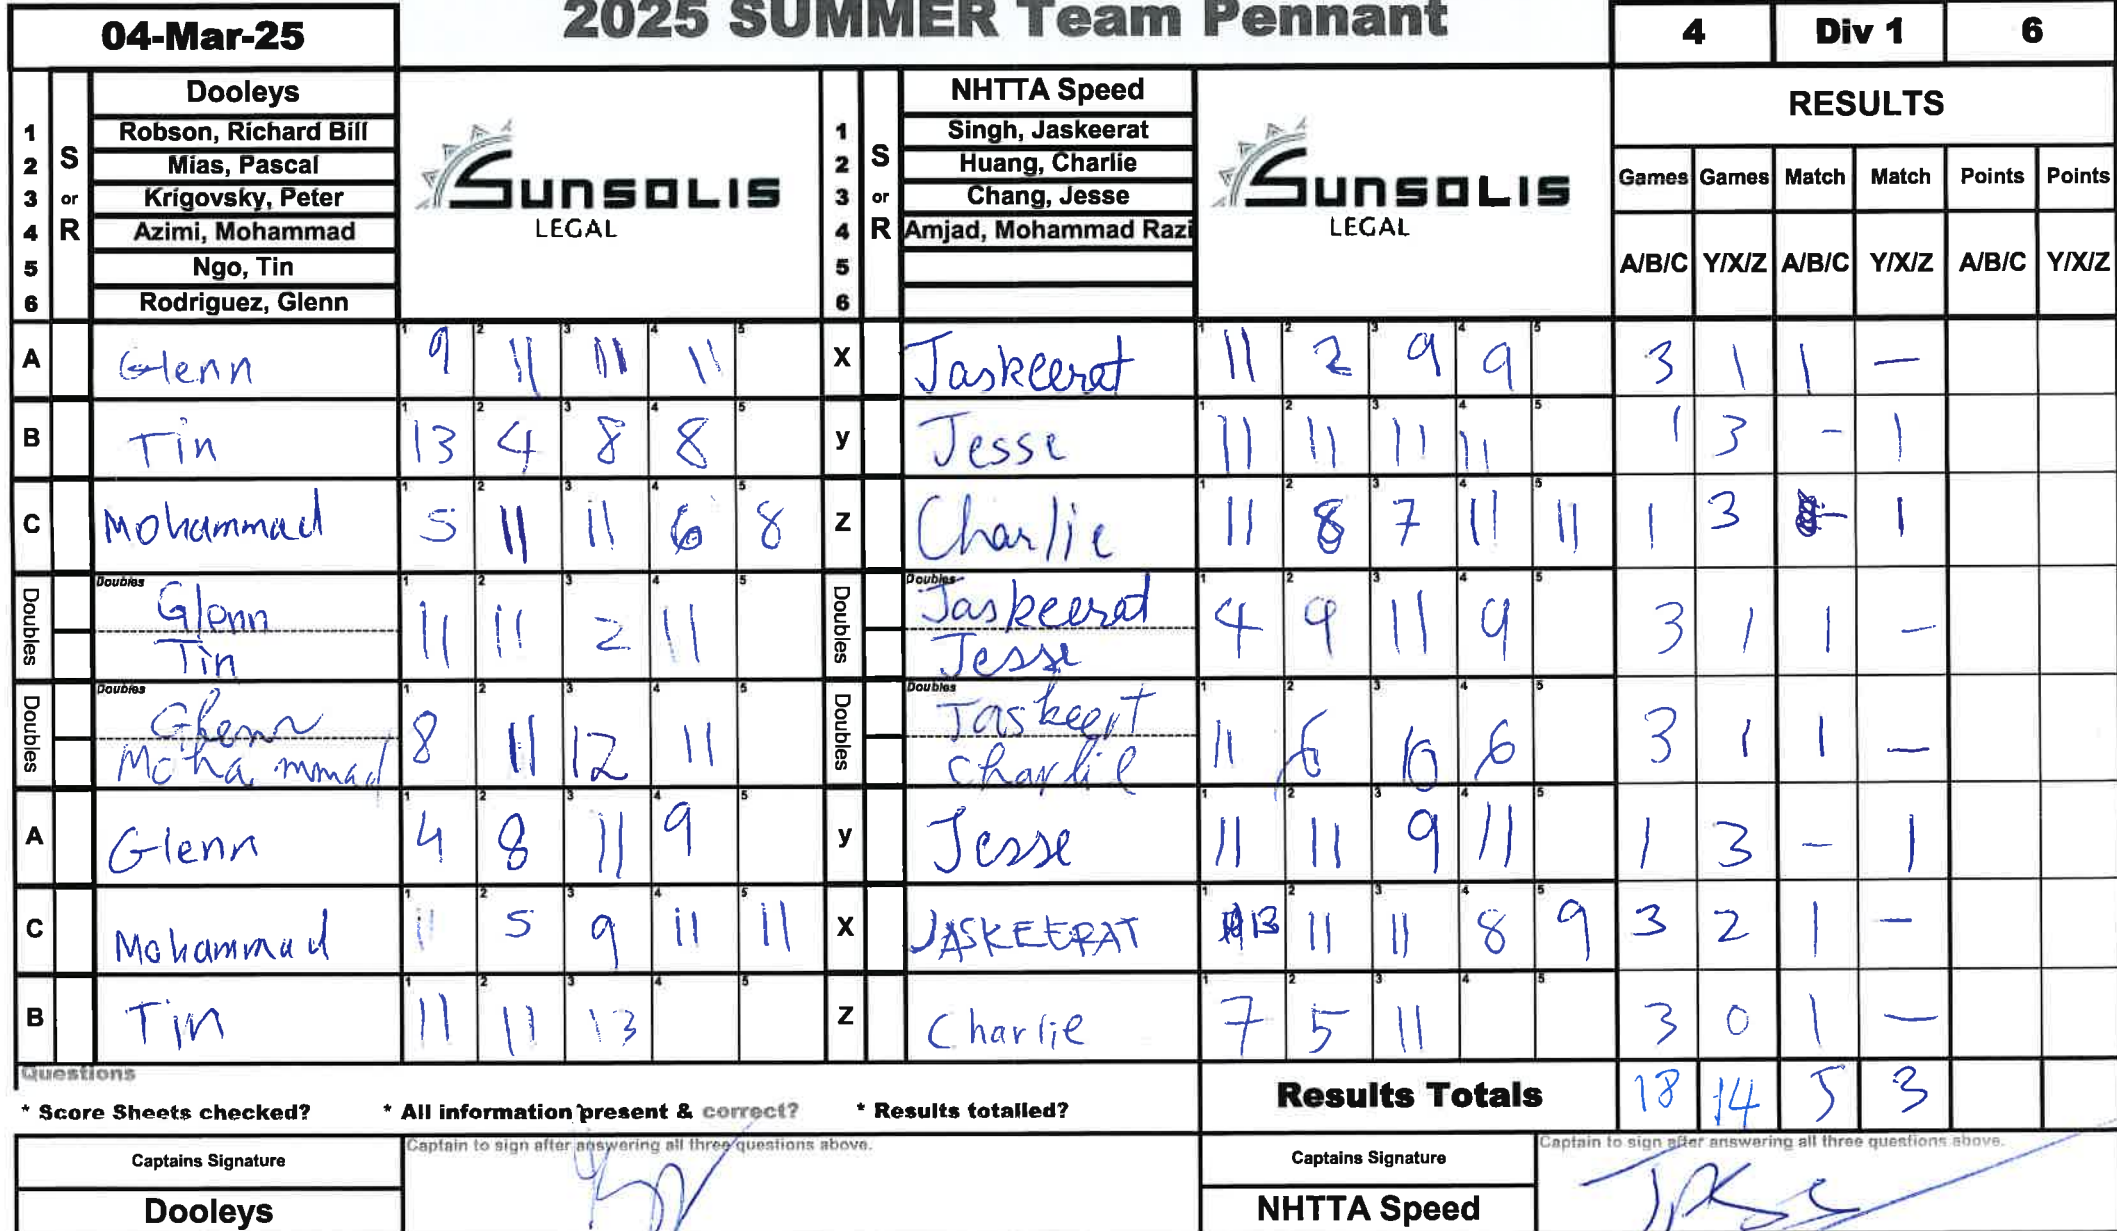 2025 SUMMER Team Pennant
04-Mar-25
4 Div 1 6
Dooleys
NHTTA Speed
RESULTS
1 Robson, Richard Bill
2 Mias, Pascal
3 Krigovsky, Peter
4 Azimi, Mohammad
5 Ngo, Tin
6 Rodriguez, Glenn
S or R
SUNSOLIS
LEGAL
1 Singh, Jaskeerat
2 Huang, Charlie
3 Chang, Jesse
4 Amjad, Mohammad Razi
5
6
S or R
SUNSOLIS
LEGAL
Games Games Match Match Points Points
A/B/C Y/X/Z A/B/C Y/X/Z A/B/C Y/X/Z
A Glenn 9 11 11 11 X Jaskeerat 11 2 9 9 3 1 1 –
B Tin 13 4 8 8 y Jesse 11 11 11 11 1 3 - 1
C Mohammad 5 11 11 6 8 Z Charlie 11 8 7 11 11 1 3 - 1
Doubles Glenn Tin 11 11 2 11 Doubles Jaskeerat Jesse 4 9 11 9 3 1 1 –
Doubles Glenn Mohammad 8 11 12 11 Doubles Jaskeert Charlie 11 6 10 6 3 1 1 –
A Glenn 4 8 11 9 y Jesse 11 11 9 11 1 3 – 1
C Mohammad 11 5 9 11 11 X JASKEERAT 13 11 11 8 9 3 2 1 –
B Tin 11 11 13 Z Charlie 7 5 11 3 0 1 –
Questions
* Score Sheets checked? * All information present & correct? * Results totalled?
Results Totals 18 14 5 3
Captains Signature
Captain to sign after answering all three questions above.
Captains Signature
Captain to sign after answering all three questions above.
Dooleys
NHTTA Speed